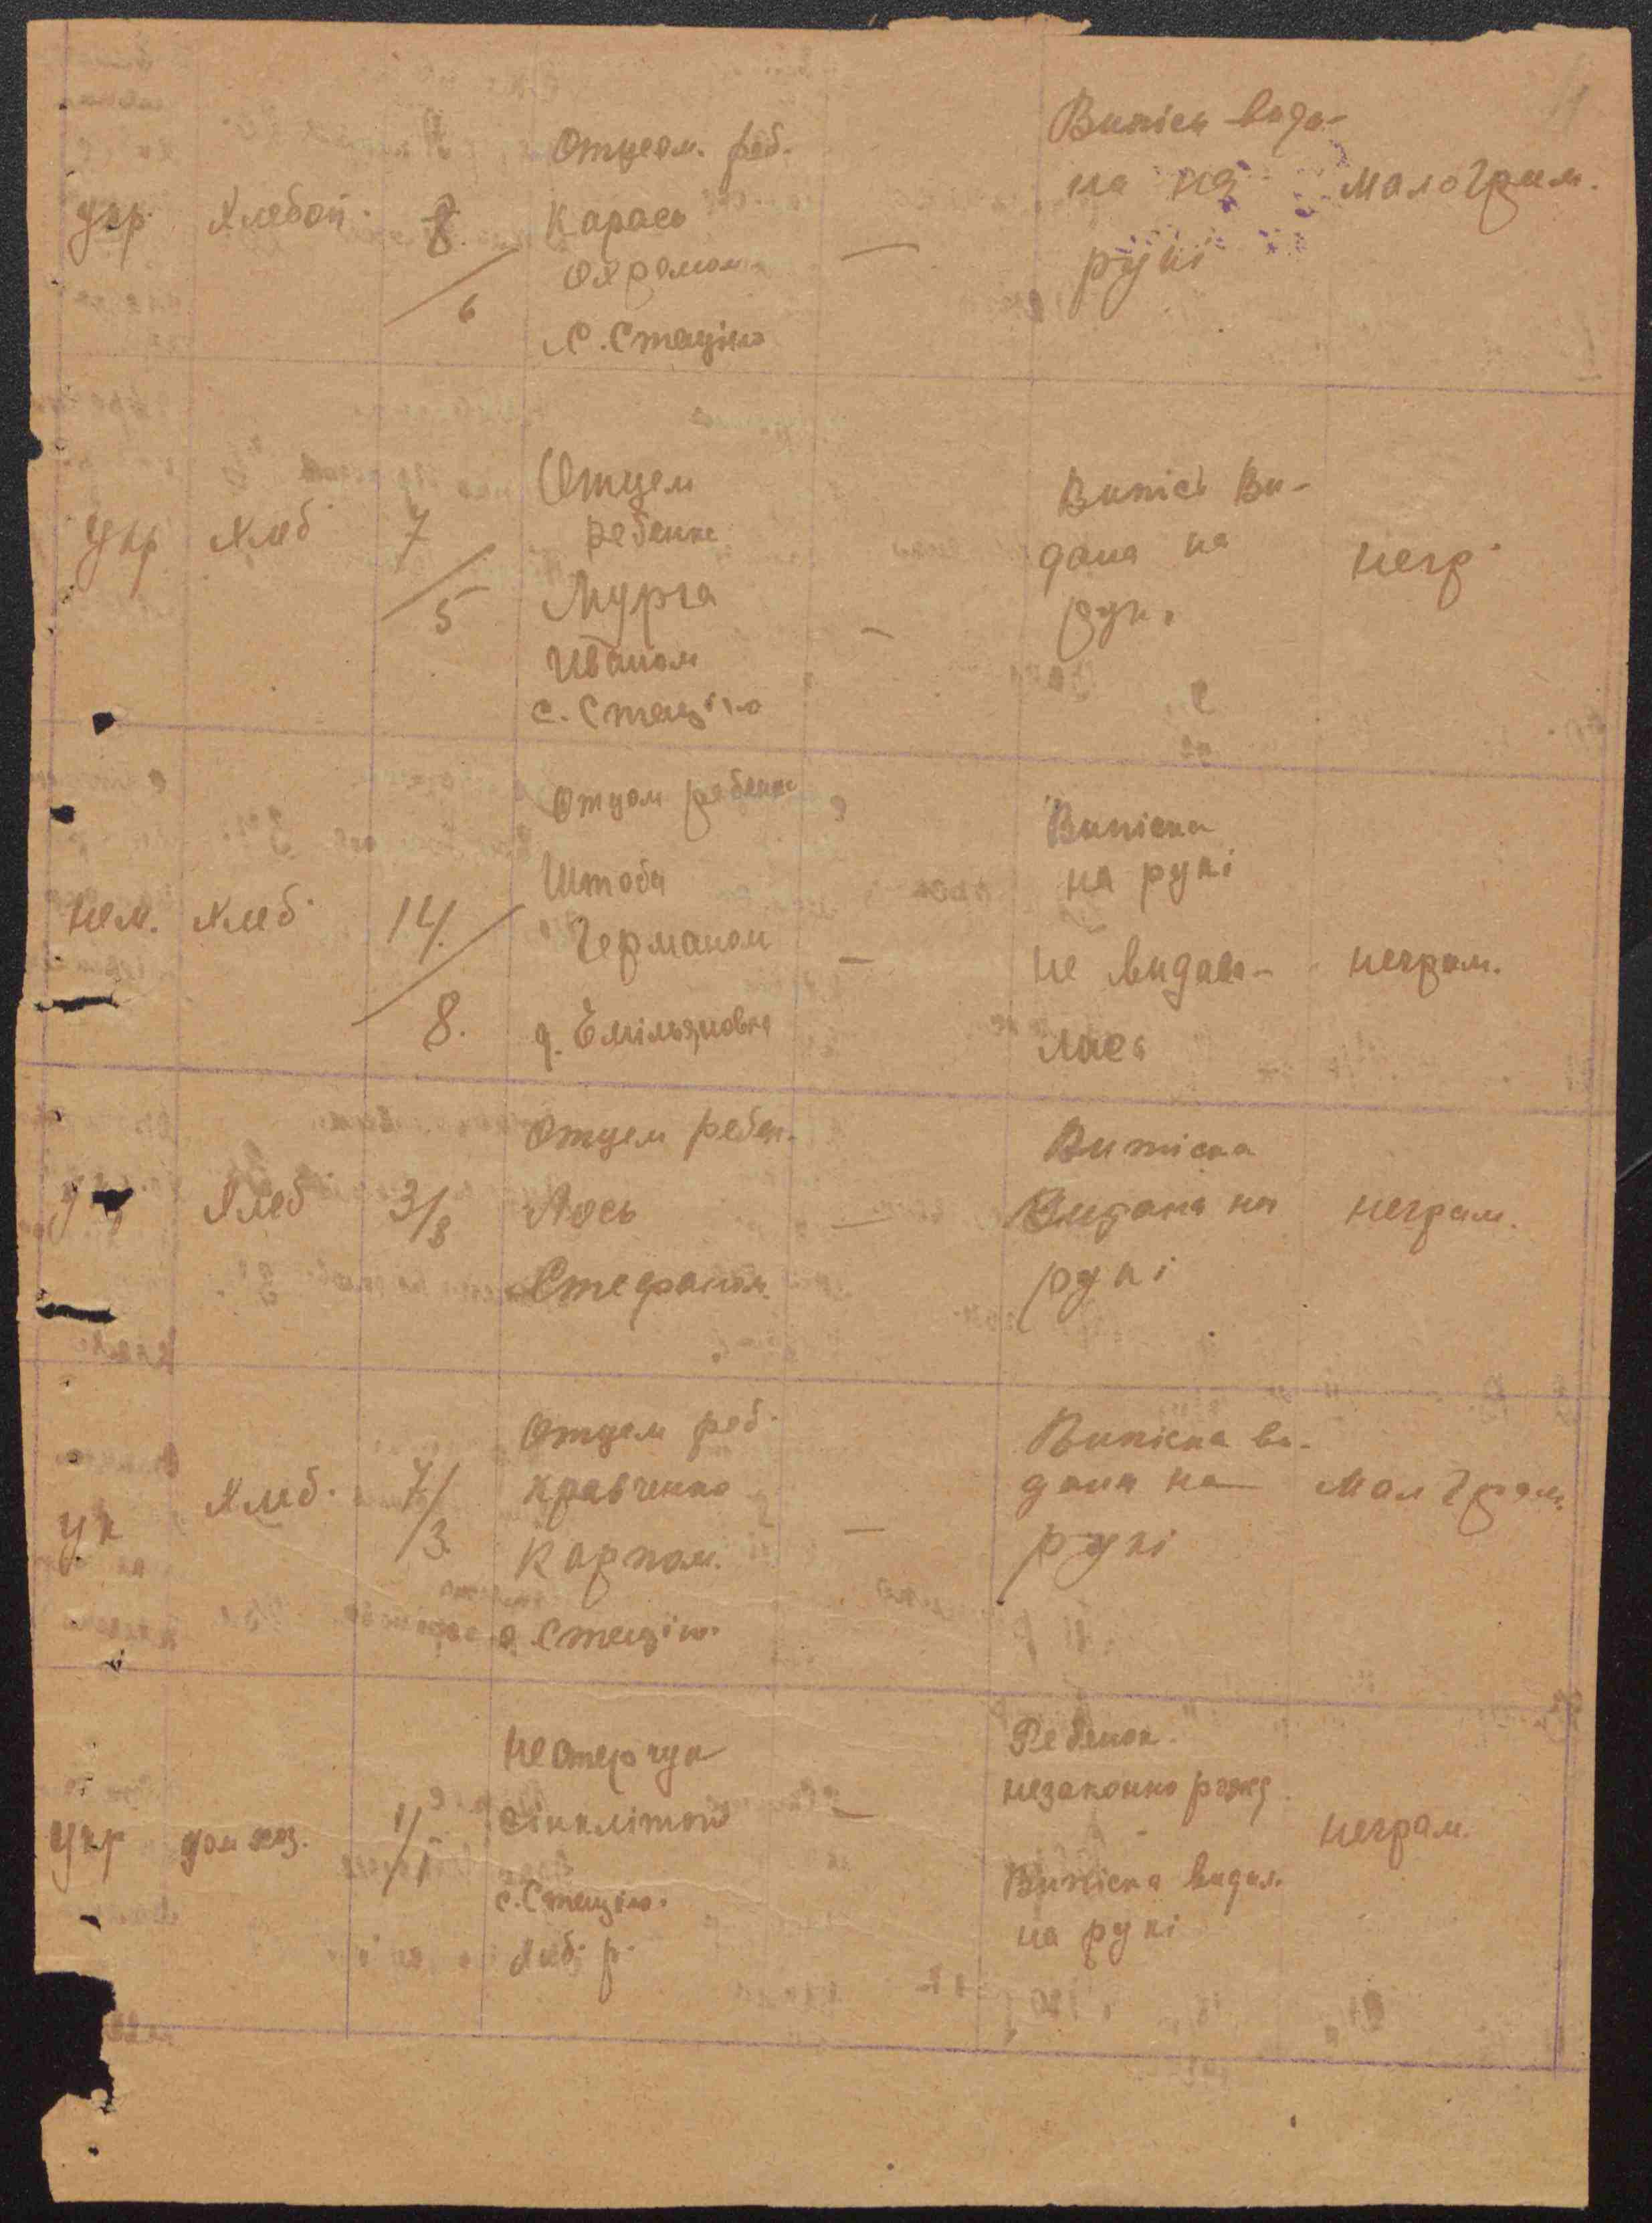 укр. Хлебоп. 8/6 Отцеом. реб.
Карась
Охрамом
с. Стецыно
—
Випісь вида-
на на
рукі
малограм.
Укр Хлеб. 7/5 Отцем
ребенке
Мурга
Иваном
с. Стеціно
—
Випісь Ви-
дана на
рук.
негр.
Нем. Хлеб. 14/8. Отцом ребенке
Штоба
Германом
д. Емільяновка
—
Випіска
на рукі
не видава-
лась
неграм.
Хлеб 3/8 Отцем ребен.
Лось
Стефаном.
—
Випіска
Видана на
рукі
неграм.
Ук Хлеб. 7/3 Отцем реб.
Кравченко
Карпом.
с. Стецін.
—
Випіска ви-
дана на
рукі
Мал Грам.
Укр дом хоз. 1/1 Нестерчук
Сінклітой
с. Стецін.
Хлеб. р.
—
Ребенок
незаконно рожд.
Випіска видал.
на рукі
неграм.